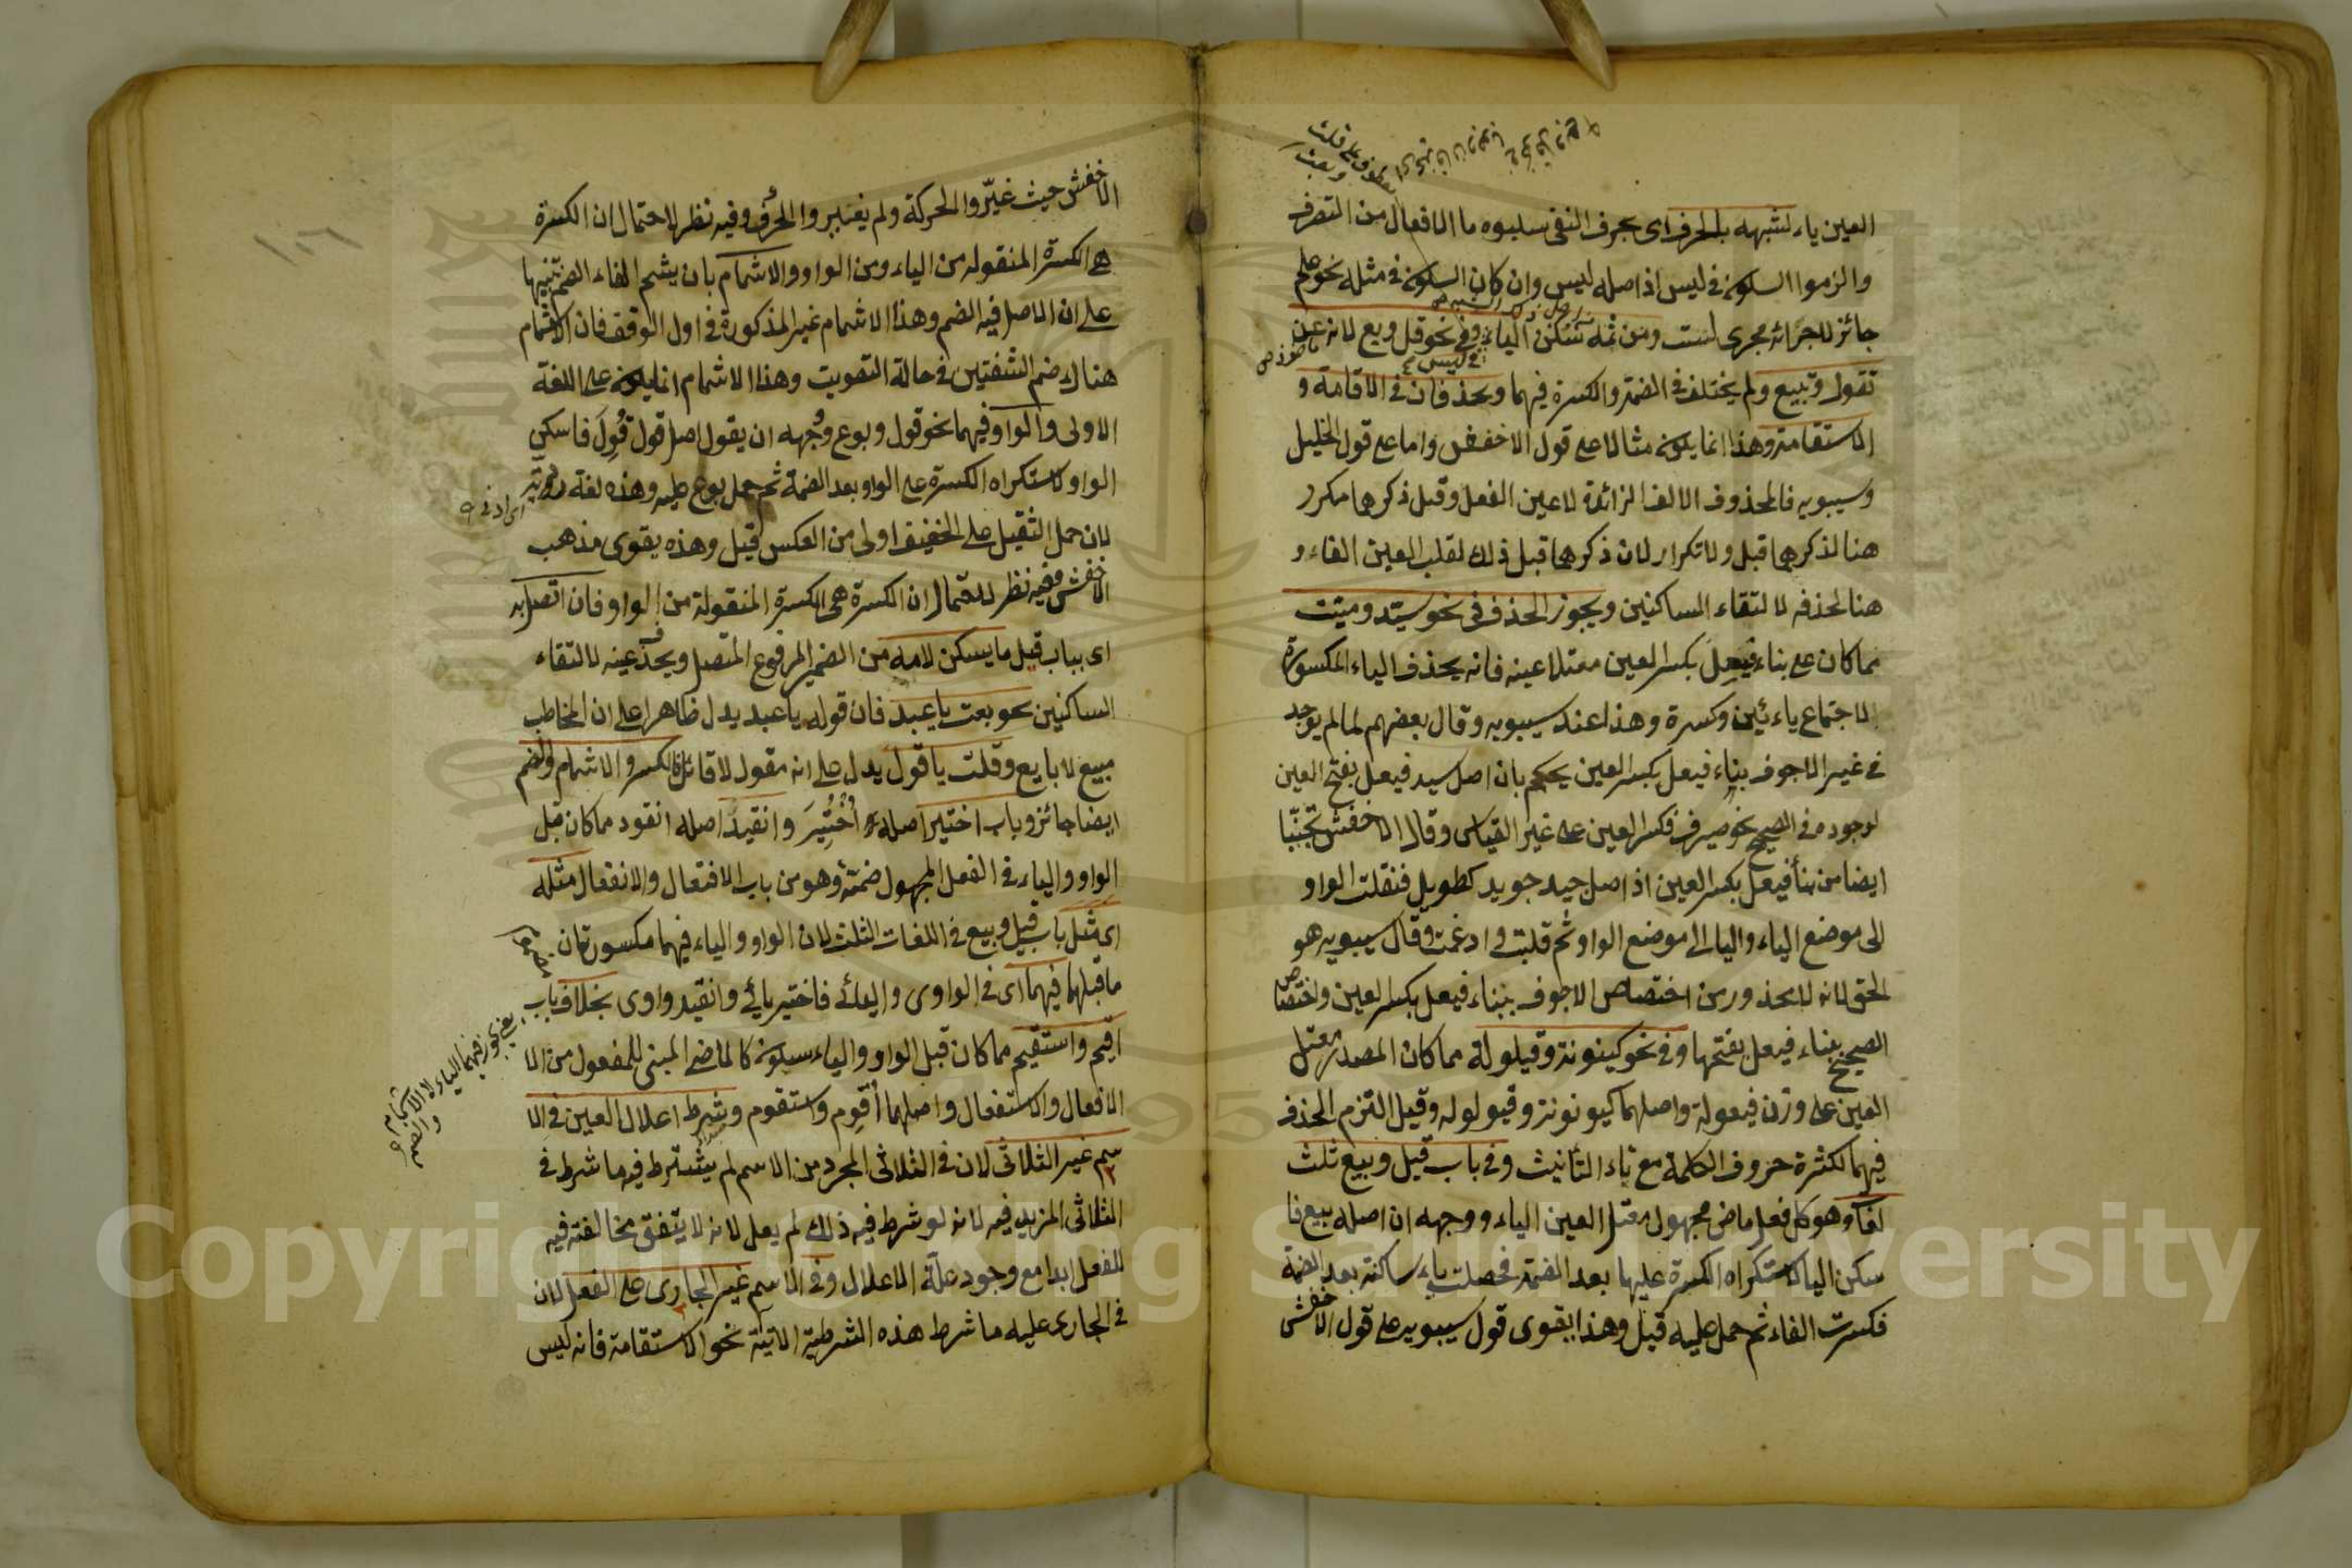 العين ياء لشبهه بالحرف اى بحرف النفى سلبوه ما للافعال من التصرف
والزموا السكون فى ليس اذ اصله ليس وان كان السكون فى مثله نحو علم
جائز للاجرائه مجرى لست ومن ثمه سكن الياء وفى نحو قل وبع لانه عن
تقول وتبيع ولم يختلف فى الضمة والكسرة فيهما ويحذفان فى الاقامة و
الاستقامة وهذا انما يكون مثالا على قول الاخفش واما على قول الخليل
وسيبويه فالمحذوف الالف الزائدة لا عين الفعل وقيل ذكرها مكرر
هنا لذكرها قبل ولا تكرار لان ذكرها قبل ذلك لقلب العين الفاء و
هنا لحذفه لالتقاء الساكنين ويجوز الحذف فى نحو سيّد وميّت
مما كان على بناء فيعِل بكسر العين معتلا عينه فانه يحذف الياء المكسورة
لاجتماع يائين وكسرة وهذا عند سيبويه وقال بعضهم لما لم يوجد
فى غير الاجوف بناء فيعل بكسر العين يحكم بان اصل سيد فيعل بفتح العين
لوجوده فى الصحيح نحو صيرف فكسر العين على غير القياس وقال الاخفش تجنّبا
ايضا من بنأ فيعل بكسر العين اذ اصل جيد جويد كطويل فنقلت الواو
الى موضع الياء والياء الى موضع الواو ثم قلبت وادغمت وقال سيبويه هو
الحق لانه لا محذور من اختصاص الاجوف ببناء فيعل بكسر العين واختصاص
الصحيح ببناء فيعل بفتحها وفى نحو كينونة وقيلولة مما كان المصدر معتل
العين على وزن فيعولة واصلهما كيونونة وقيولولة وقيل التزم الحذف
فيهما لكثرة حروف الكلمة مع تاء التأنيث وفى باب قيل وبيع ثلث
لغات وهو كل فعل ماض مجهول معتل العين الياء ووجهه ان اصله بيع فا
سكن الياء لاستكراه الكسرة عليها بعد الضمة فحصلت ياء ساكنة بعد الضمة
فكسرت الفاء ثم حمل عليه قيل وهذا يقوى قول سيبويه على قول الاخفش
١٠٦
الاخفش حيث غيّروا الحركة ولم يغيروا الحرف وفيه نظر لاحتمال ان الكسرة
هى الكسرة المنقولة من الياء ومن الواو والاشمام بان يشم الفاء الضم تنبيها
على ان الاصل فيه الضم وهذا الاشمام غير المذكورة فى اول الوقف فان الاشمام
هناك ضم الشفتين فى حالة التصويت وهذا الاشمام انما يكون على اللغة
الاولى والواو فيهما نحو قول وبوع وجهه ان يقول اصل قول قُوِلَ فاسكن
الواو لاستكراه الكسرة على الواو بعد الضمة ثم حمل بوع عليه وهذه لغة
لان حمل الثقيل على الخفيف اولى من العكس قيل وهذه يقوى مذهب
الاخفش وفيه نظر لاحتمال ان الكسرة هى الكسرة المنقولة من الواو فان اتصل به
اى بباب قيل ما يسكن لامه من الضمير المرفوع المتصل ويحذف عينه لالتقاء
الساكنين نحو بعت يا عبد فان قوله يا عبد يدل ظاهرا على ان المخاطب
مبيع لا بايع وقلت يا قول يدل على انه مقول لا قائل فالكسر والاشمام والضم
ايضا جائز وباب اختير اصله اُخْتُيِرَ وانقيد اصله انقود مما كان قبل
الواو والياء فى الفعل المجهول ضمة وهو من باب الافتعال والانفعال مثله
اى مثل باب قيل وبيع فى اللغات الثلث لان الواو والياء فيهما مكسورتان
ما قبلهما فيهما اى فى الواوى واليائى فاختير يائى وانقيد واوى بخلاف باب
اقيم واستقيم مما كان قبل الواو والياء سكون كالماضى المبنى للمفعول من الا
الافعال والاستفعال واصلهما أُقوِم واستقوم وشرط اعلال العين فى الا
سم غير الثلاثى لان فى الثلاثى المجرد من الاسم لم يشترط فيه ما شرط فى
الثلاثى المزيد فيه لانه لو شرط فيه ذلك لم يعل لانه لا يتفق مخالفته فيه
للفعل ابدا مع وجود علة الاعلال وفى الاسم غير الجارى على الفعل لان
فى الجارى عليه ما شرط هذه الشرطية الاتية نحو الاستقامة فانه ليس
Copyright © King Saud University